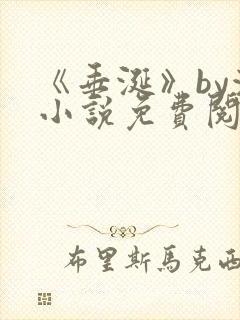 《垂涎》by
小說免費閱
布里斯馬克西